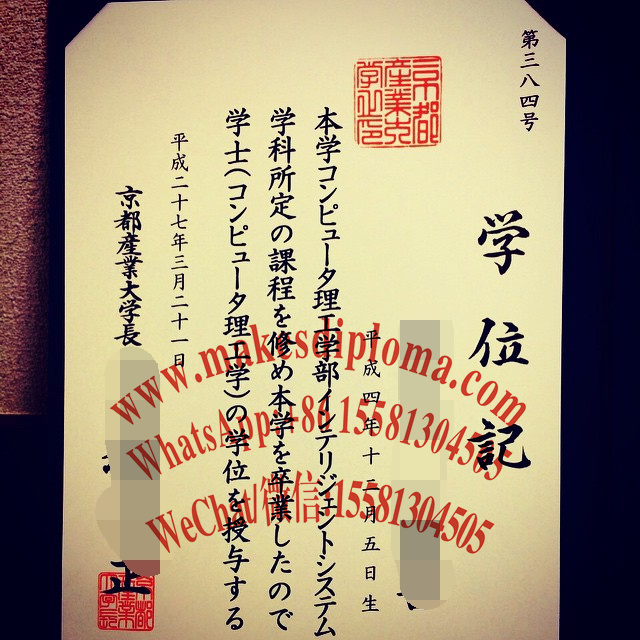 第三八四号
京都
産業大
学之印
学位記
平成四年十二月五日生
本学コンピュータ理工学部インテリジェントシステム
学科所定の課程を修め本学を卒業したので
学士(コンピュータ理工学)の学位を授与する
平成二十七年三月二十一日
京都産業大学長
正
www.makesdiploma.com
WhatsApp:+86 15581304505
WeChat/微信:15581304505